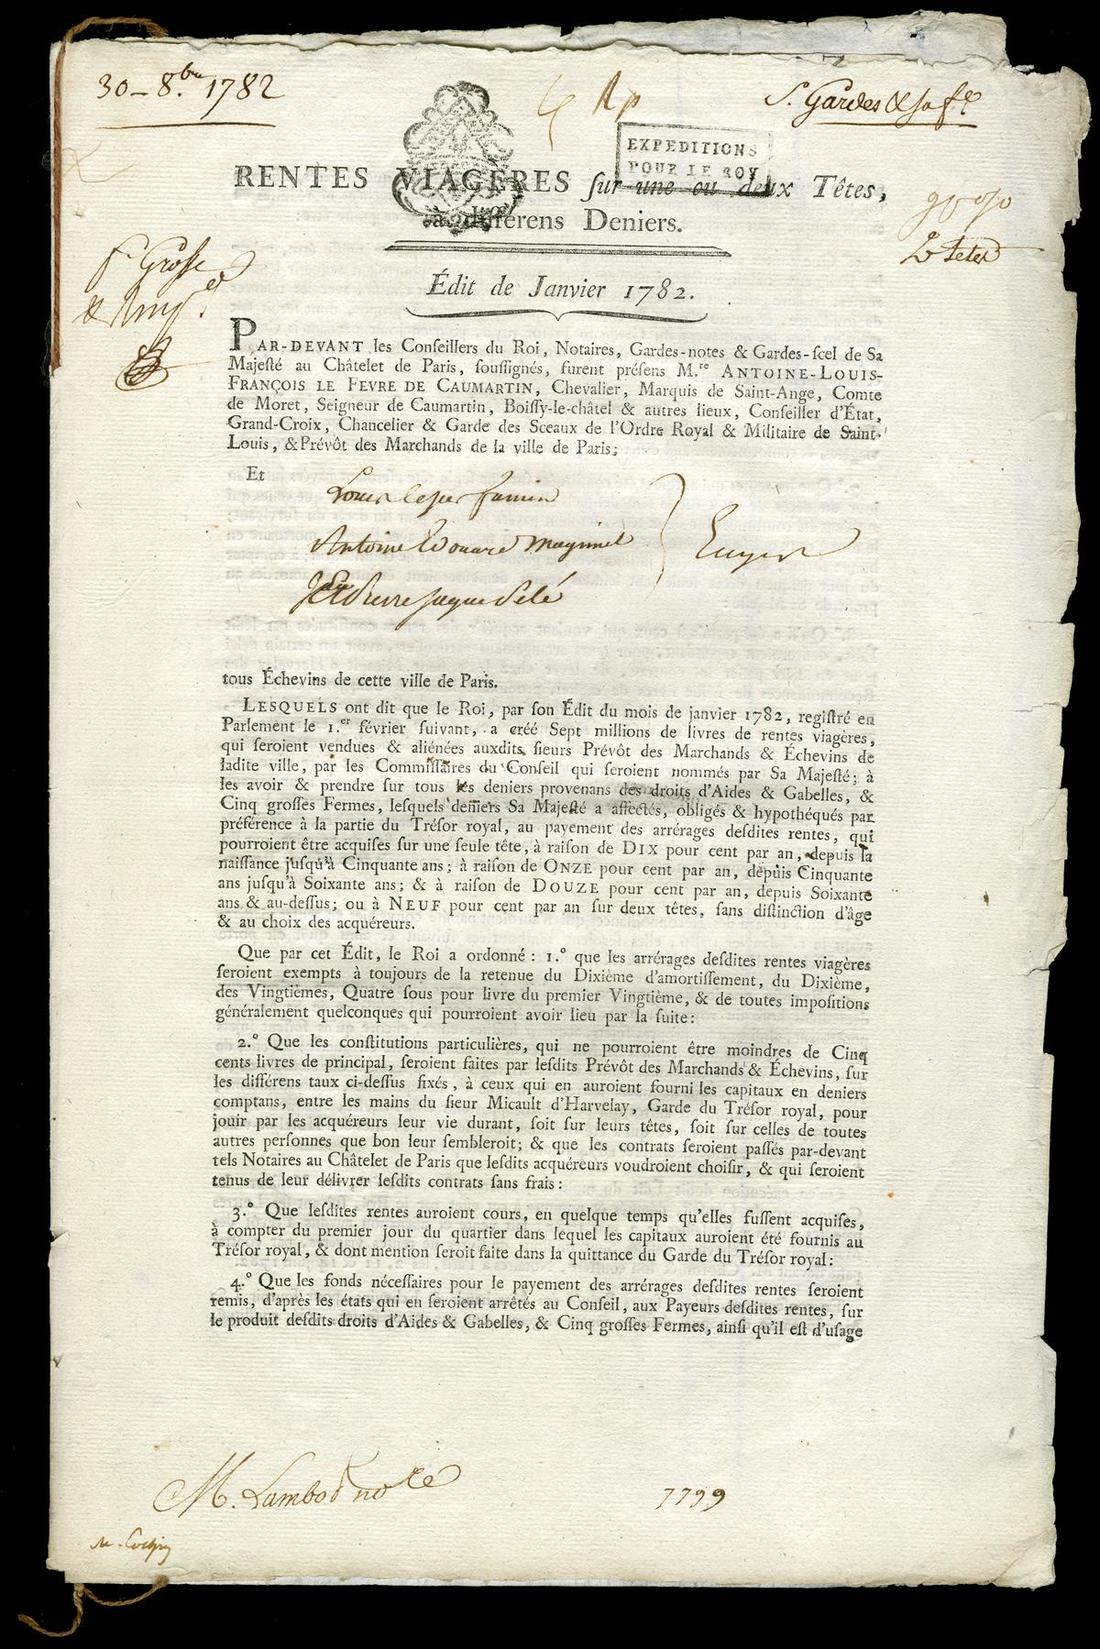 30_ 8.bre 1782
S. Gardes & sa fe
EXPEDITIONS
POUR LE ROY
RENTES VIAGÈRES ſur une ou deux Têtes,
à différens Deniers.
9 p o/o
2 Tetes
Édit de Janvier 1782.
fe Groſſe
PAR-DEVANT les Conſeillers du Roi, Notaires, Gardes-notes & Gardes-ſcel de Sa
Majeſté au Châtelet de Paris, ſouſſignés, furent préſens M.re ANTOINE-LOUIS-
FRANÇOIS LE FEVRE DE CAUMARTIN, Chevalier, Marquis de Saint-Ange, Comte
de Moret, Seigneur de Caumartin, Boiſſy-le-châtel & autres lieux, Conſeiller d'État,
Grand-Croix, Chancelier & Garde des Sceaux de l'Ordre Royal & Militaire de Saint-
Louis, & Prévôt des Marchands de la ville de Paris;
Et
Louis Cesar famin
Antoine Edouard Magimel
Pierre Jaque Pelé
Ecuyers
tous Échevins de cette ville de Paris.
LESQUELS ont dit que le Roi, par ſon Édit du mois de janvier 1782, regiſtré en
Parlement le 1.er février ſuivant, a créé Sept millions de livres de rentes viagères,
qui ſeroient vendues & aliénées auxdits ſieurs Prévôt des Marchands & Échevins de
ladite ville, par les Commiſſaires du Conſeil qui ſeroient nommés par Sa Majeſté; à
les avoir & prendre ſur tous les deniers provenans des droits d'Aides & Gabelles, &
Cinq groſſes Fermes, leſquels deniers Sa Majeſté a affectés, obligés & hypothéqués par
préférence à la partie du Tréſor royal, au payement des arrérages deſdites rentes, qui
pourroient être acquiſes ſur une ſeule tête, à raiſon de DIX pour cent par an, depuis la
naiſſance juſqu'à Cinquante ans; à raiſon de ONZE pour cent par an, depuis Cinquante
ans juſqu'à Soixante ans; & à raiſon de DOUZE pour cent par an, depuis Soixante
ans & au-deſſus; ou à NEUF pour cent par an ſur deux têtes, ſans diſtinction d'âge
& au choix des acquéreurs.
Que par cet Édit, le Roi a ordonné : 1.° que les arrérages deſdites rentes viagères
ſeroient exempts à toujours de la retenue du Dixième d'amortiſſement, du Dixième,
des Vingtièmes, Quatre ſous pour livre du premier Vingtième, & de toutes impoſitions
généralement quelconques qui pourroient avoir lieu par la ſuite:
2.° Que les conſtitutions particulières, qui ne pourroient être moindres de Cinq
cents livres de principal, ſeroient faites par leſdits Prévôt des Marchands & Échevins, ſur
les différens taux ci-deſſus fixés, à ceux qui en auroient fourni les capitaux en deniers
comptans, entre les mains du ſieur Micault d'Harvelay, Garde du Tréſor royal, pour
jouir par les acquéreurs leur vie durant, ſoit ſur leurs têtes, ſoit ſur celles de toutes
autres perſonnes que bon leur ſembleroit; & que les contrats ſeroient paſſés par-devant
tels Notaires au Châtelet de Paris que leſdits acquéreurs voudroient choiſir, & qui ſeroient
tenus de leur délivrer leſdits contrats sans frais :
3.° Que leſdites rentes auroient cours, en quelque temps qu'elles fuſſent acquiſes,
à compter du premier jour du quartier dans lequel les capitaux auroient été fournis au
Tréſor royal, & dont mention ſeroit faite dans la quittance du Garde du Tréſor royal :
4.° Que les fonds néceſſaires pour le payement des arrérages deſdites rentes ſeroient
remis, d'après les états qui en ſeroient arrêtés au Conſeil, aux Payeurs deſdites rentes, ſur
le produit deſdits droits d'Aides & Gabelles, & Cinq groſſes Fermes, ainſi qu'il eſt d'uſage
M. Lambot nore
7799